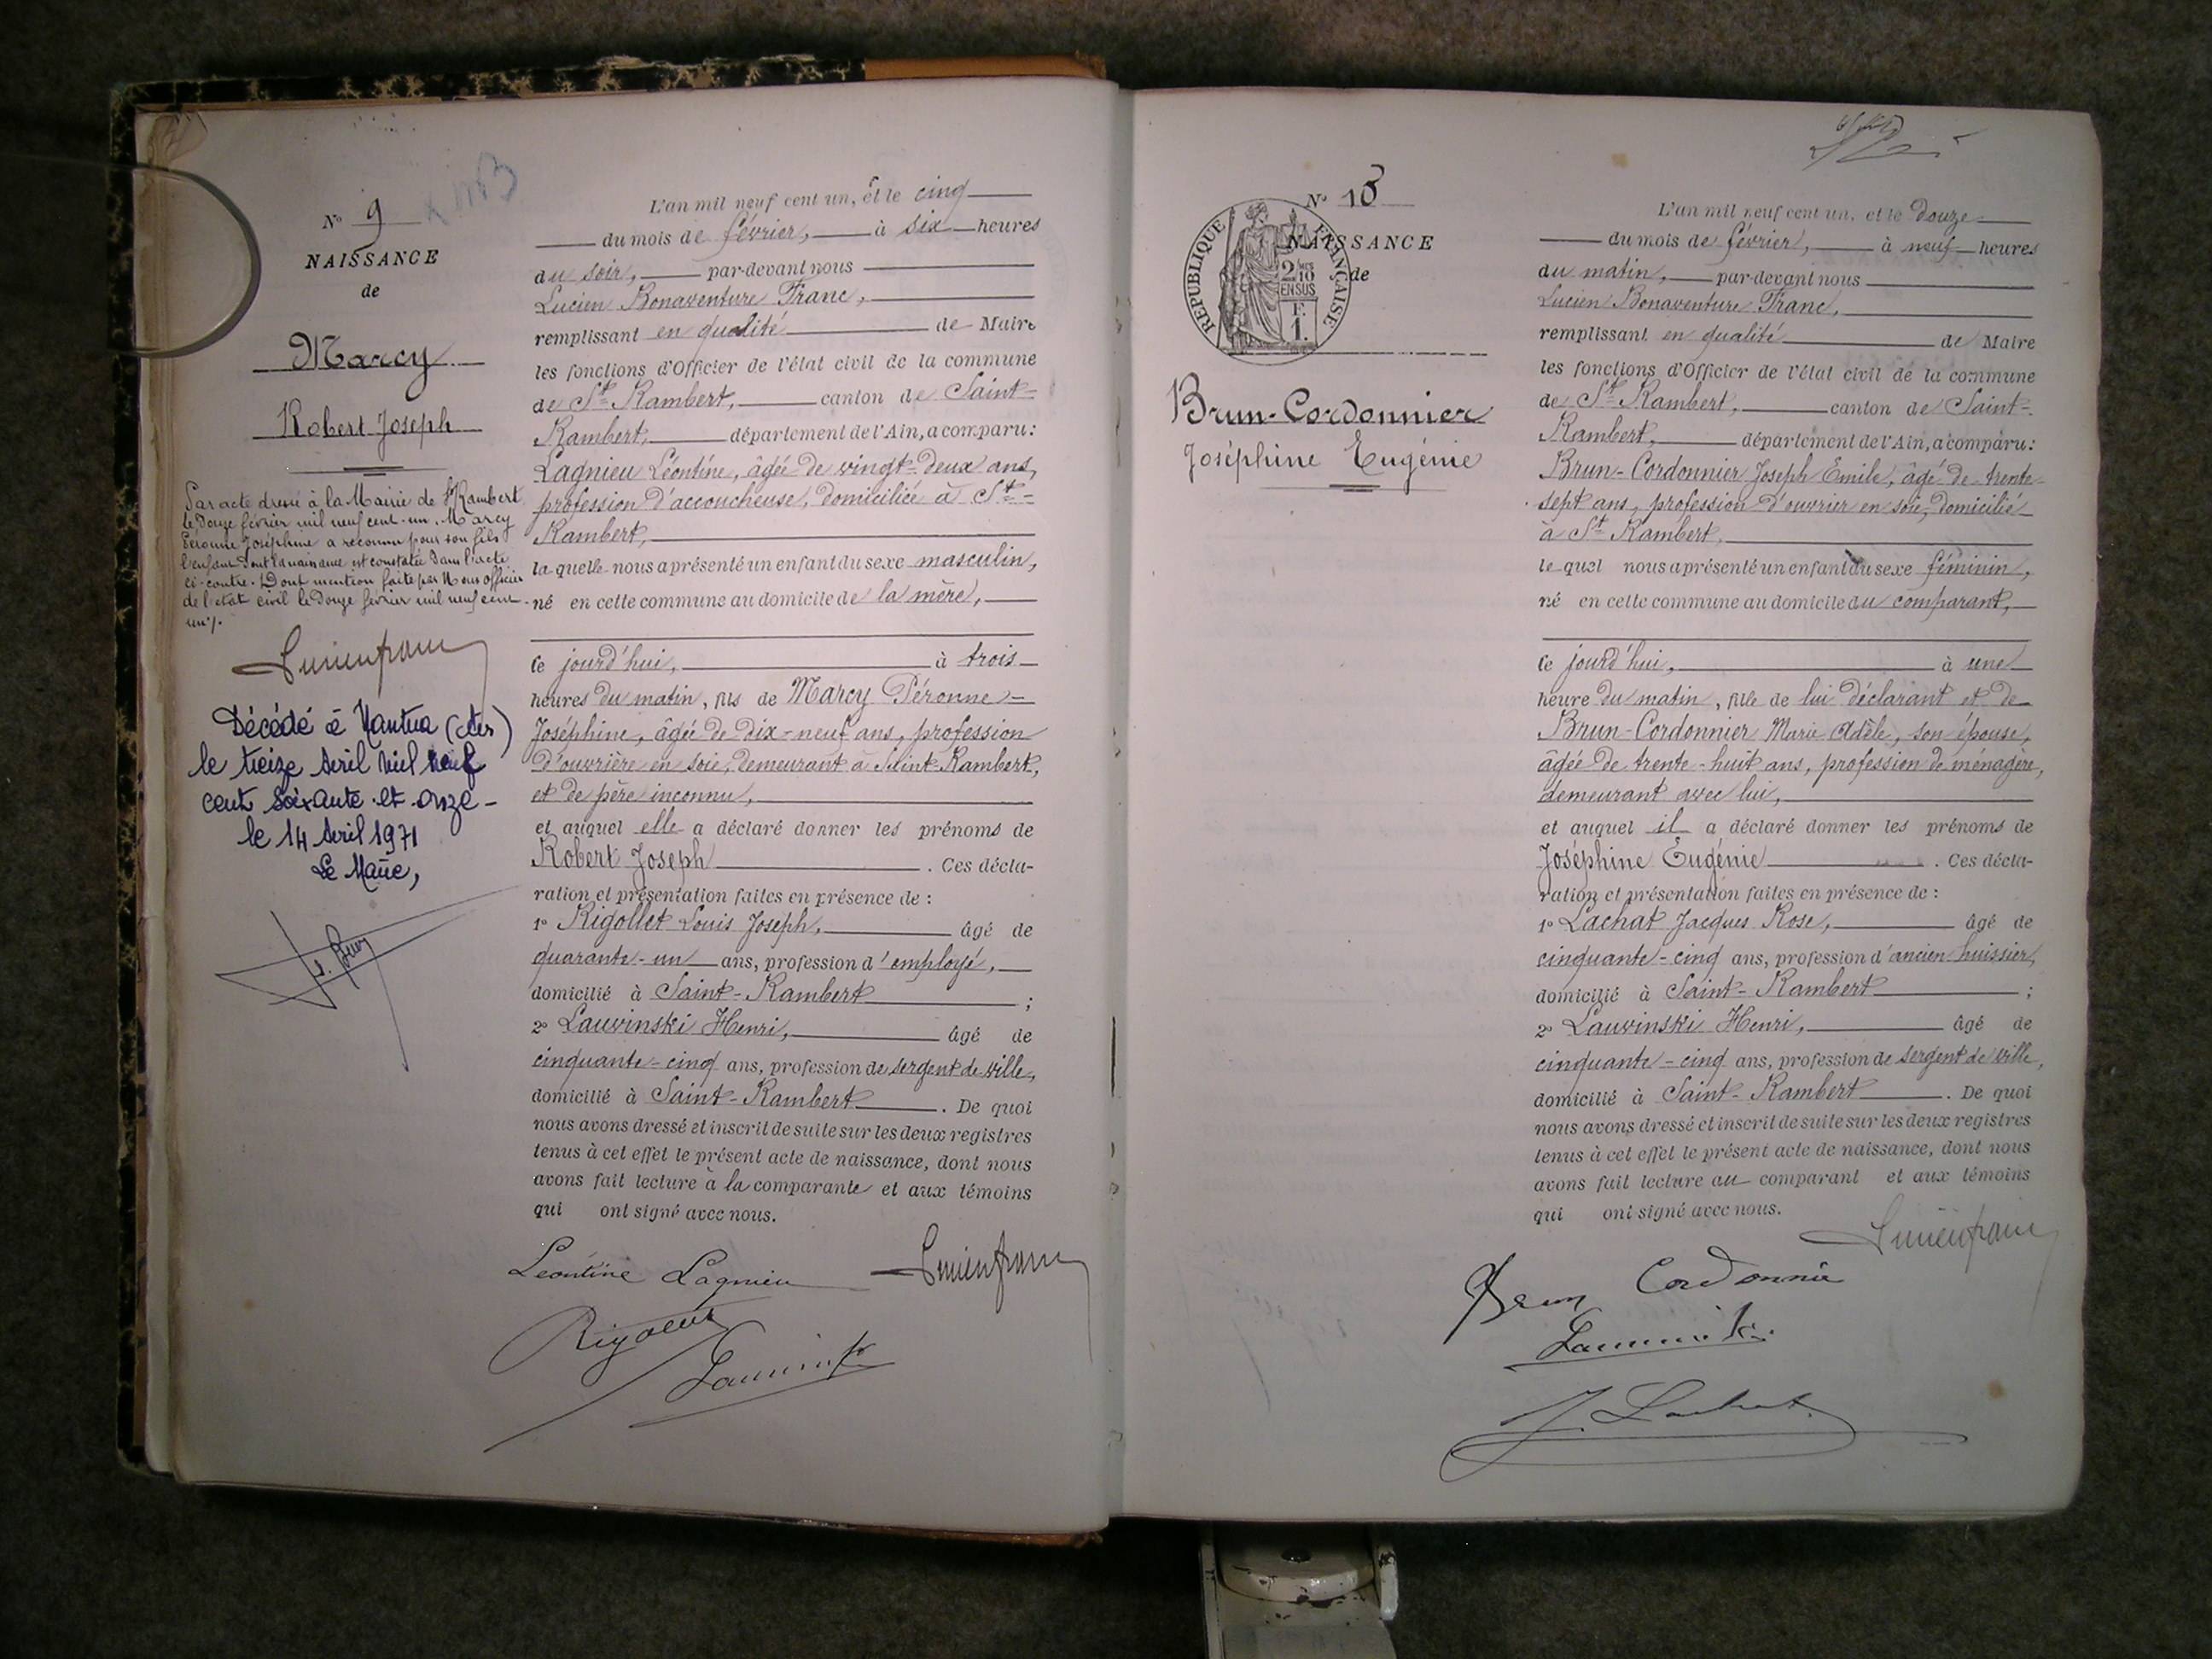 N° 9
NAISSANCE
de
Marcy
Robert Joseph
Par acte dressé à la Mairie de St Rambert
le douze février mil neuf cent-un, Marcy
Péronne Joséphine a reconnu pour son fils
l'enfant dont la naissance est constatée dans l'acte
ci-contre. Dont mention faite par Nous officier
de l'état civil le douze février mil neuf cent-
un.
Lucien franc
Décédé à Nantua (Ain)
le treize Avril Mil neuf
cent soixante-et-onze-
le 14 Avril 1971
Le Maire,
L'an mil neuf cent un, et le cinq
du mois de février, à six heures
du soir, par-devant nous
Lucien Bonaventure Franc,
remplissant en qualité de Maire
les fonctions d'Officier de l'état civil de la commune
de St Rambert, canton de Saint-
Rambert, département de l'Ain, a comparu:
Lagnieu Léontine, âgée de vingt-deux ans,
profession d'accoucheuse, domiciliée à St-
Rambert,
la quelle nous a présenté un enfant du sexe masculin,
né en cette commune au domicile de la mère,
ce jourd'hui, à trois
heures du matin, fils de Marcy Péronne-
Joséphine, âgée de dix-neuf ans, profession
d'ouvrière en soie, demeurant à Saint-Rambert,
et de père inconnu,
et auquel elle a déclaré donner les prénoms de
Robert Joseph. Ces décla-
ration et présentation faites en présence de :
1° Rigollet Louis Joseph, âgé de
quarante-un ans, profession d'employé,
domicilié à Saint-Rambert ;
2° Lauvinski Henri, âgé de
cinquante-cinq ans, profession de sergent de ville,
domicilié à Saint-Rambert. De quoi
nous avons dressé et inscrit de suite sur les deux registres
tenus à cet effet le présent acte de naissance, dont nous
avons fait lecture à la comparante et aux témoins
qui ont signé avec nous.
Léontine Lagnieu Lucien franc
Rigollet
Lauvinski
N° 10
NAISSANCE
de
RÉPUBLIQUE FRANÇAISE
2/10
EN SUS
F.
1.
Brun-Cordonnier
Joséphine Eugénie
L'an mil neuf cent un, et le douze
du mois de février, à neuf heures
du matin, par-devant nous
Lucien Bonaventure Franc,
remplissant en qualité de Maire
les fonctions d'Officier de l'état civil de la commune
de St Rambert, canton de Saint-
Rambert, département de l'Ain, a comparu:
Brun-Cordonnier Joseph Emile, âgé de trente-
sept ans, profession d'ouvrier en soie, domicilié
à St Rambert,
le quel nous a présenté un enfant du sexe féminin,
né en cette commune au domicile du comparant,
ce jourd'hui, à une
heure du matin, fille de lui déclarant et de
Brun-Cordonnier Marie Adèle, son épouse,
âgée de trente-huit ans, profession de ménagère,
demeurant avec lui,
et auquel il a déclaré donner les prénoms de
Joséphine Eugénie. Ces décla-
ration et présentation faites en présence de :
1° Lachat Jacques Rose, âgé de
cinquante-cinq ans, profession d'ancien huissier,
domicilié à Saint-Rambert ;
2° Lauvinski Henri, âgé de
cinquante-cinq ans, profession de sergent de ville,
domicilié à Saint-Rambert. De quoi
nous avons dressé et inscrit de suite sur les deux registres
tenus à cet effet le présent acte de naissance, dont nous
avons fait lecture au comparant et aux témoins
qui ont signé avec nous.
Lucien franc
Brun Cordonnier
Lauvinski
J. Lachat